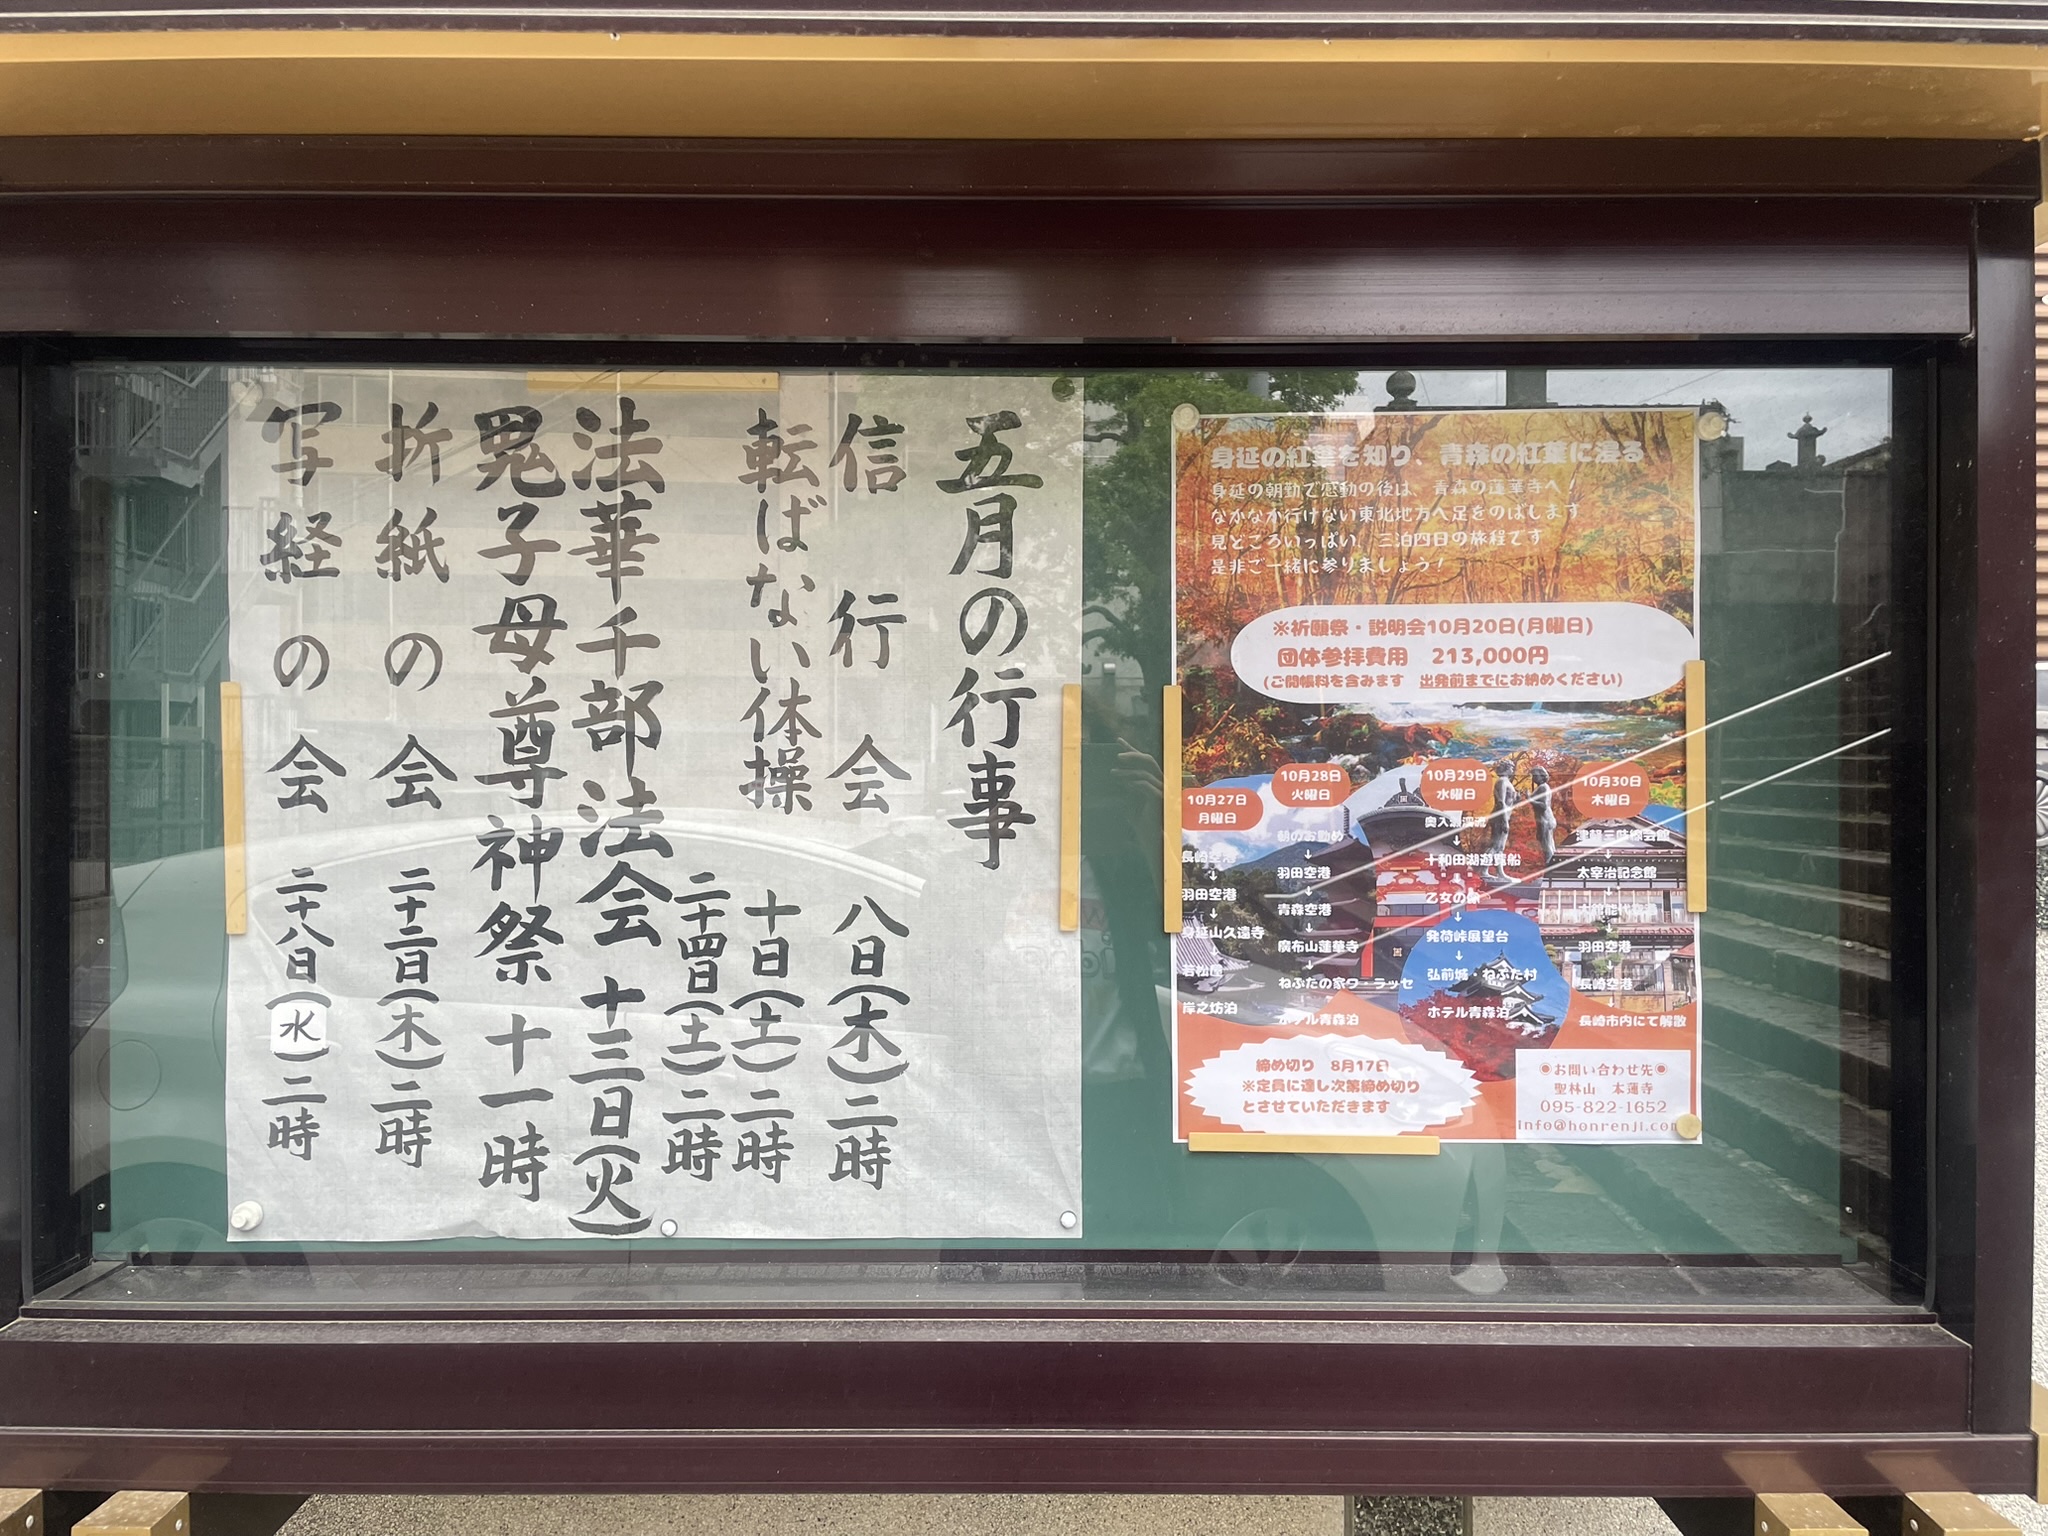 五月の行事
信行会 八日(木)二時
転ばない体操 十日(土)二時
二十四日(土)二時
法華千部法会 十三日(火)
鬼子母尊神祭 十一時
折紙の会 二十二日(木)二時
写経の会 二十八日(水)二時
身延の紅葉を知り、青森の紅葉に浸る
身延の朝勤で感動の後は、青森の蓮華寺へ!
なかなか行けない東北地方へ足をのばします
見どころいっぱい、三泊四日の旅程です
是非ご一緒に参りましょう!
※祈願祭・説明会10月20日(月曜日)
団体参拝費用 213,000円
(ご開帳料を含みます 出発前までにお納めください)
10月27日
月曜日
長崎空港
↓
羽田空港
↓
身延山久遠寺
↓
若松屋
↓
岸之坊泊
10月28日
火曜日
朝のお勤め
↓
羽田空港
↓
青森空港
↓
廣布山蓮華寺
↓
ねぶたの家ワ・ラッセ
↓
ホテル青森泊
10月29日
水曜日
奥入瀬渓流
↓
十和田湖遊覧船
↓
乙女の像
↓
発荷峠展望台
↓
弘前城・ねぷた村
↓
ホテル青森泊
10月30日
木曜日
津軽三味線会館
↓
太宰治記念館
↓
大館能代空港
↓
羽田空港
↓
長崎空港
↓
長崎市内にて解散
締め切り 8月17日
※定員に達し次第締め切り
とさせていただきます
◉お問い合わせ先◉
聖林山 本蓮寺
095-822-1652
info@honrenji.com